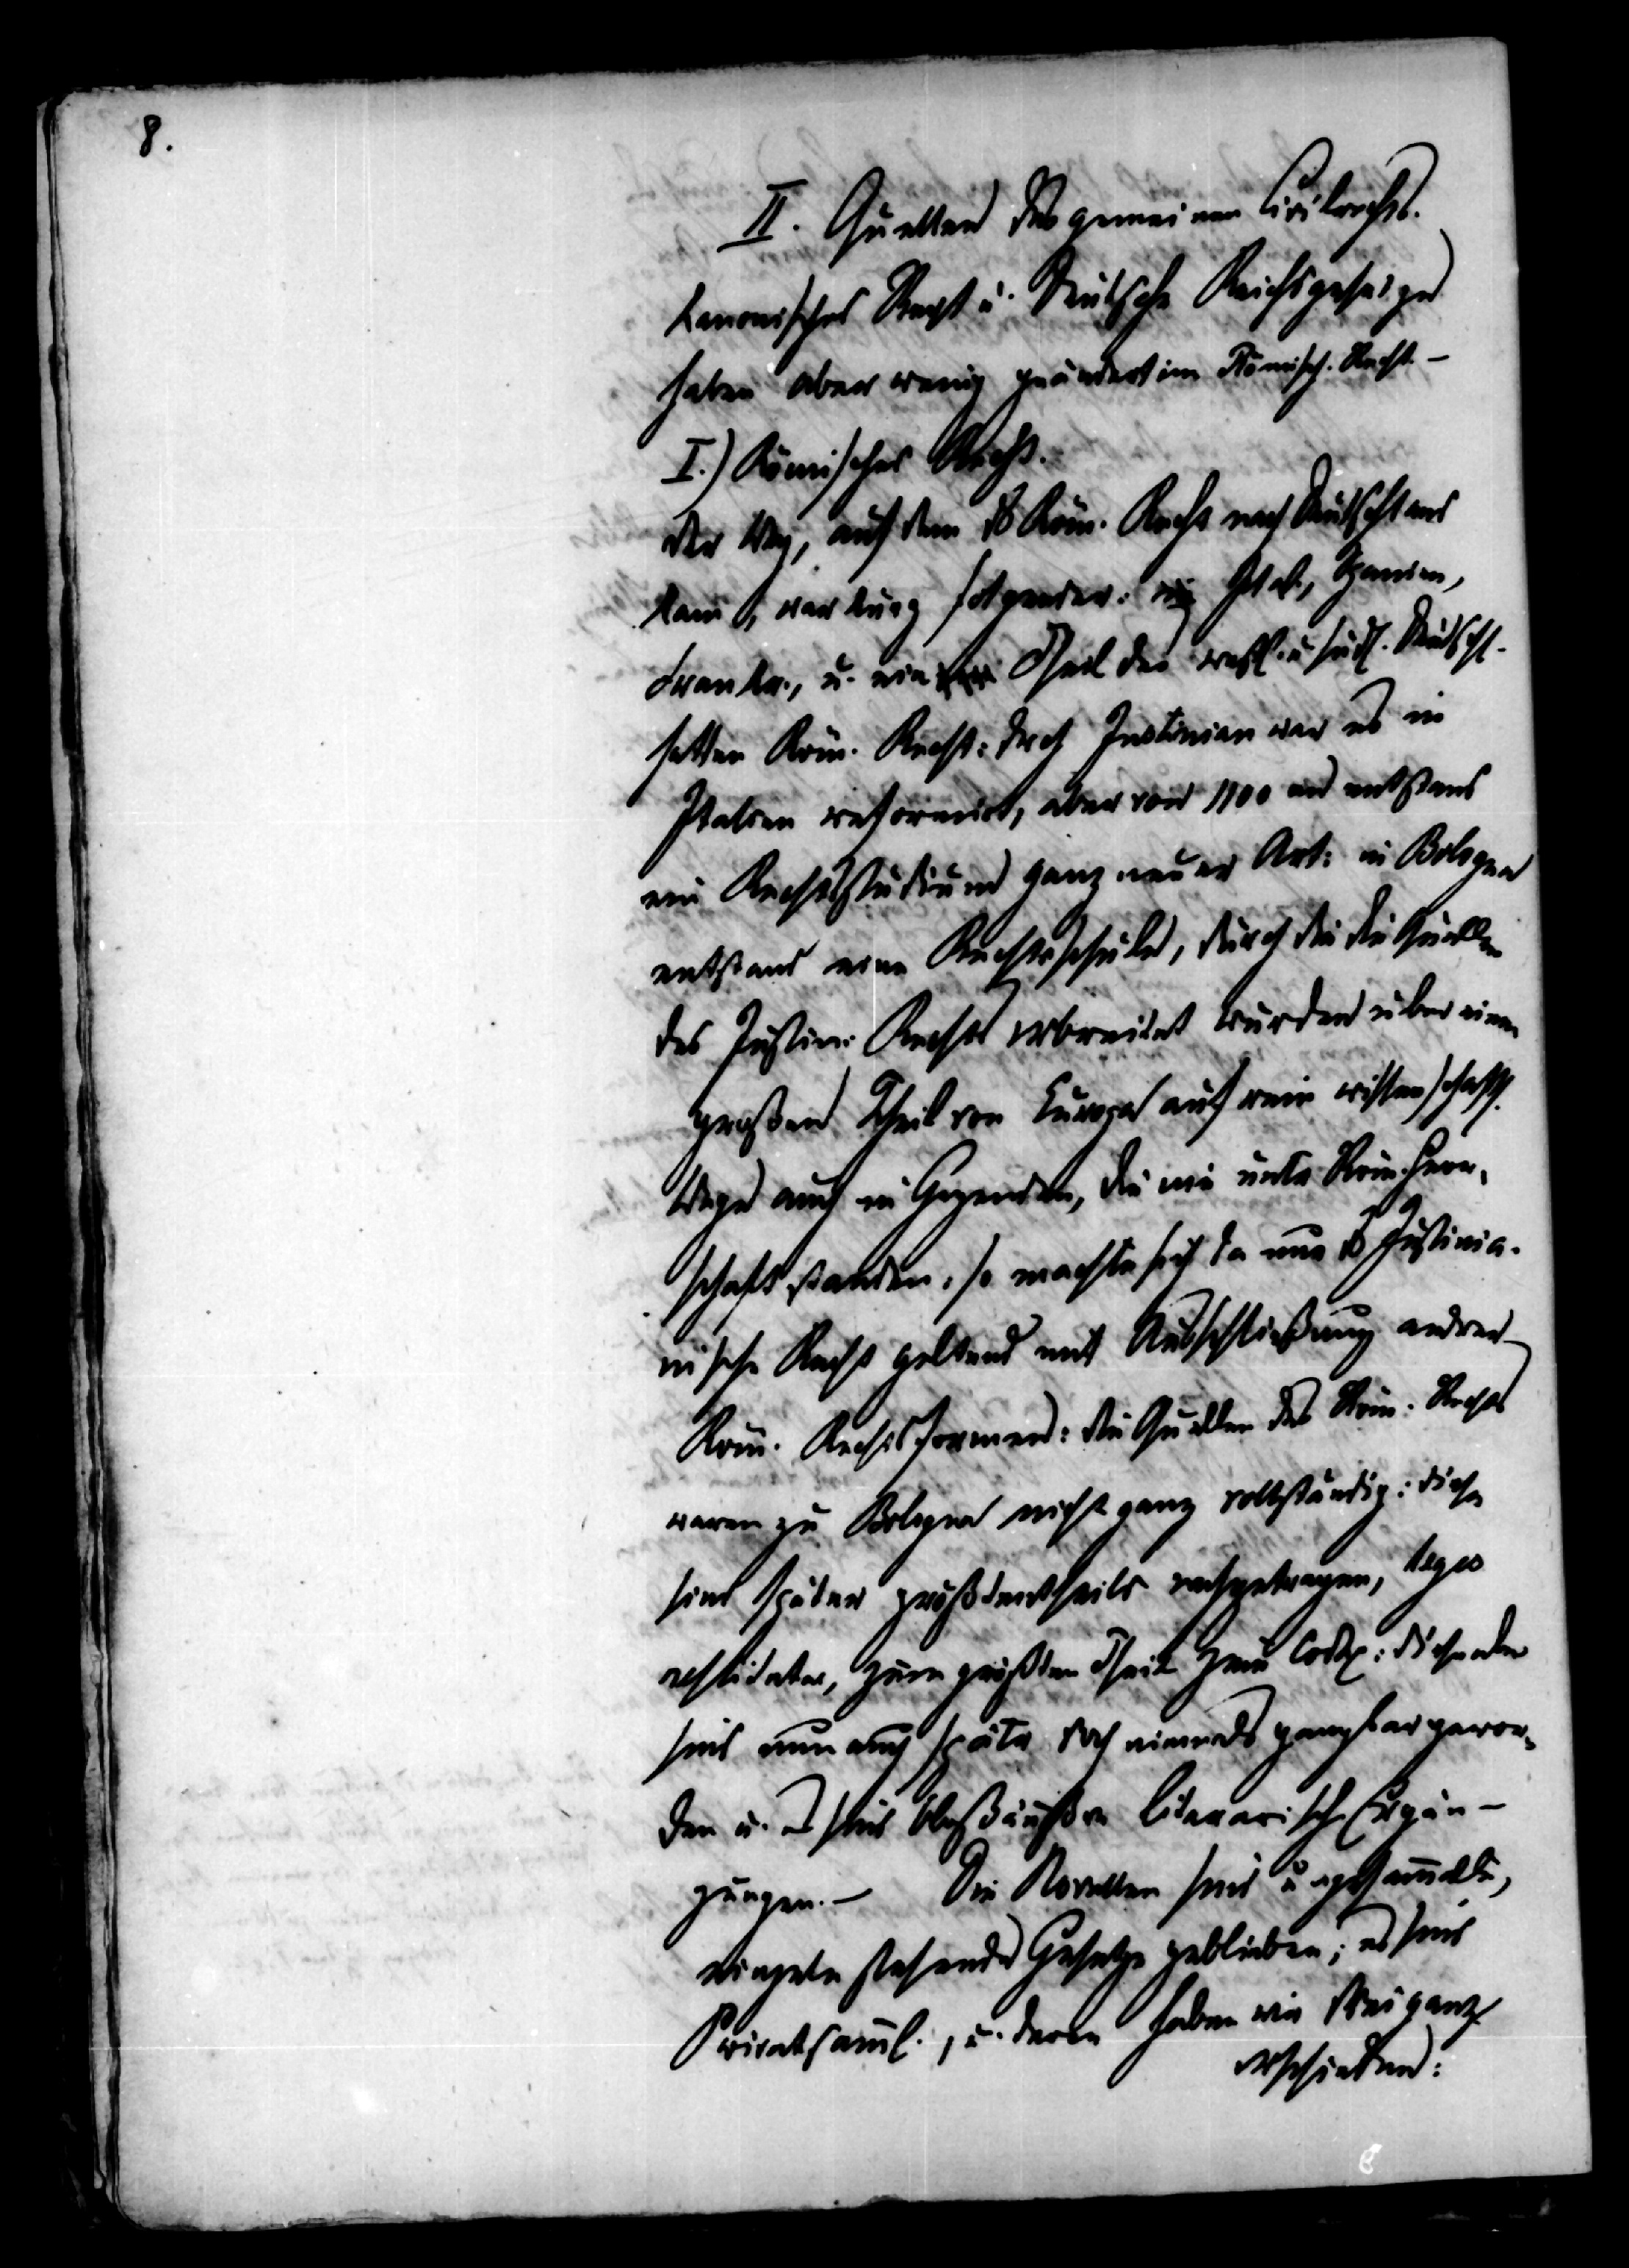 8.
II. Quellen des gemeinen Civilrechts.
Kanonisches Recht u. Deutsche Reichsgesetze
haben aber wenig geändert im Römisch. Recht. –
I.) Römisches Recht.
Der Weg, auf dem das Röm. Recht nach Deutschland
kam, war kurz folgender: Ital., Spanien,
Frankr., u. ein Theil des westl. u. südl. Deutschl.
hatten Röm. Recht: durch Justinian war es in
Italien reformirt, aber von 1100 an entstand
ein Rechtsstudium ganz neuer Art: in Bologna
entstand eine Rechtsschule, durch die die Quellen
des Justin. Rechts verbreitet wurden über einen
großen Theil von Europa auf rein wissenschaftl.
Wege auch in Gegenden, die nie unter Röm. Herr-
schaft standen, so machte sich da nur das Justinia-
nische Recht geltend mit Ausschließung andrer
Röm. Rechtsformen: die Quellen des Röm. Rechts
waren zu Bologna nicht ganz vollständig: diese
sind später größtentheils nachgetragen, leges
restitutae, zum größten Theil zum Codex: diese aber
sind nun auch später doch niemals gangbar gewor-
den u. es sind bloß äußere literarische Ergän-
zungen. – Die Novellen sind ungesammelte,
einzeln stehende Gesetze geblieben; es sind
Privatsamml., u. deren haben wir drei ganz
verschiedene: